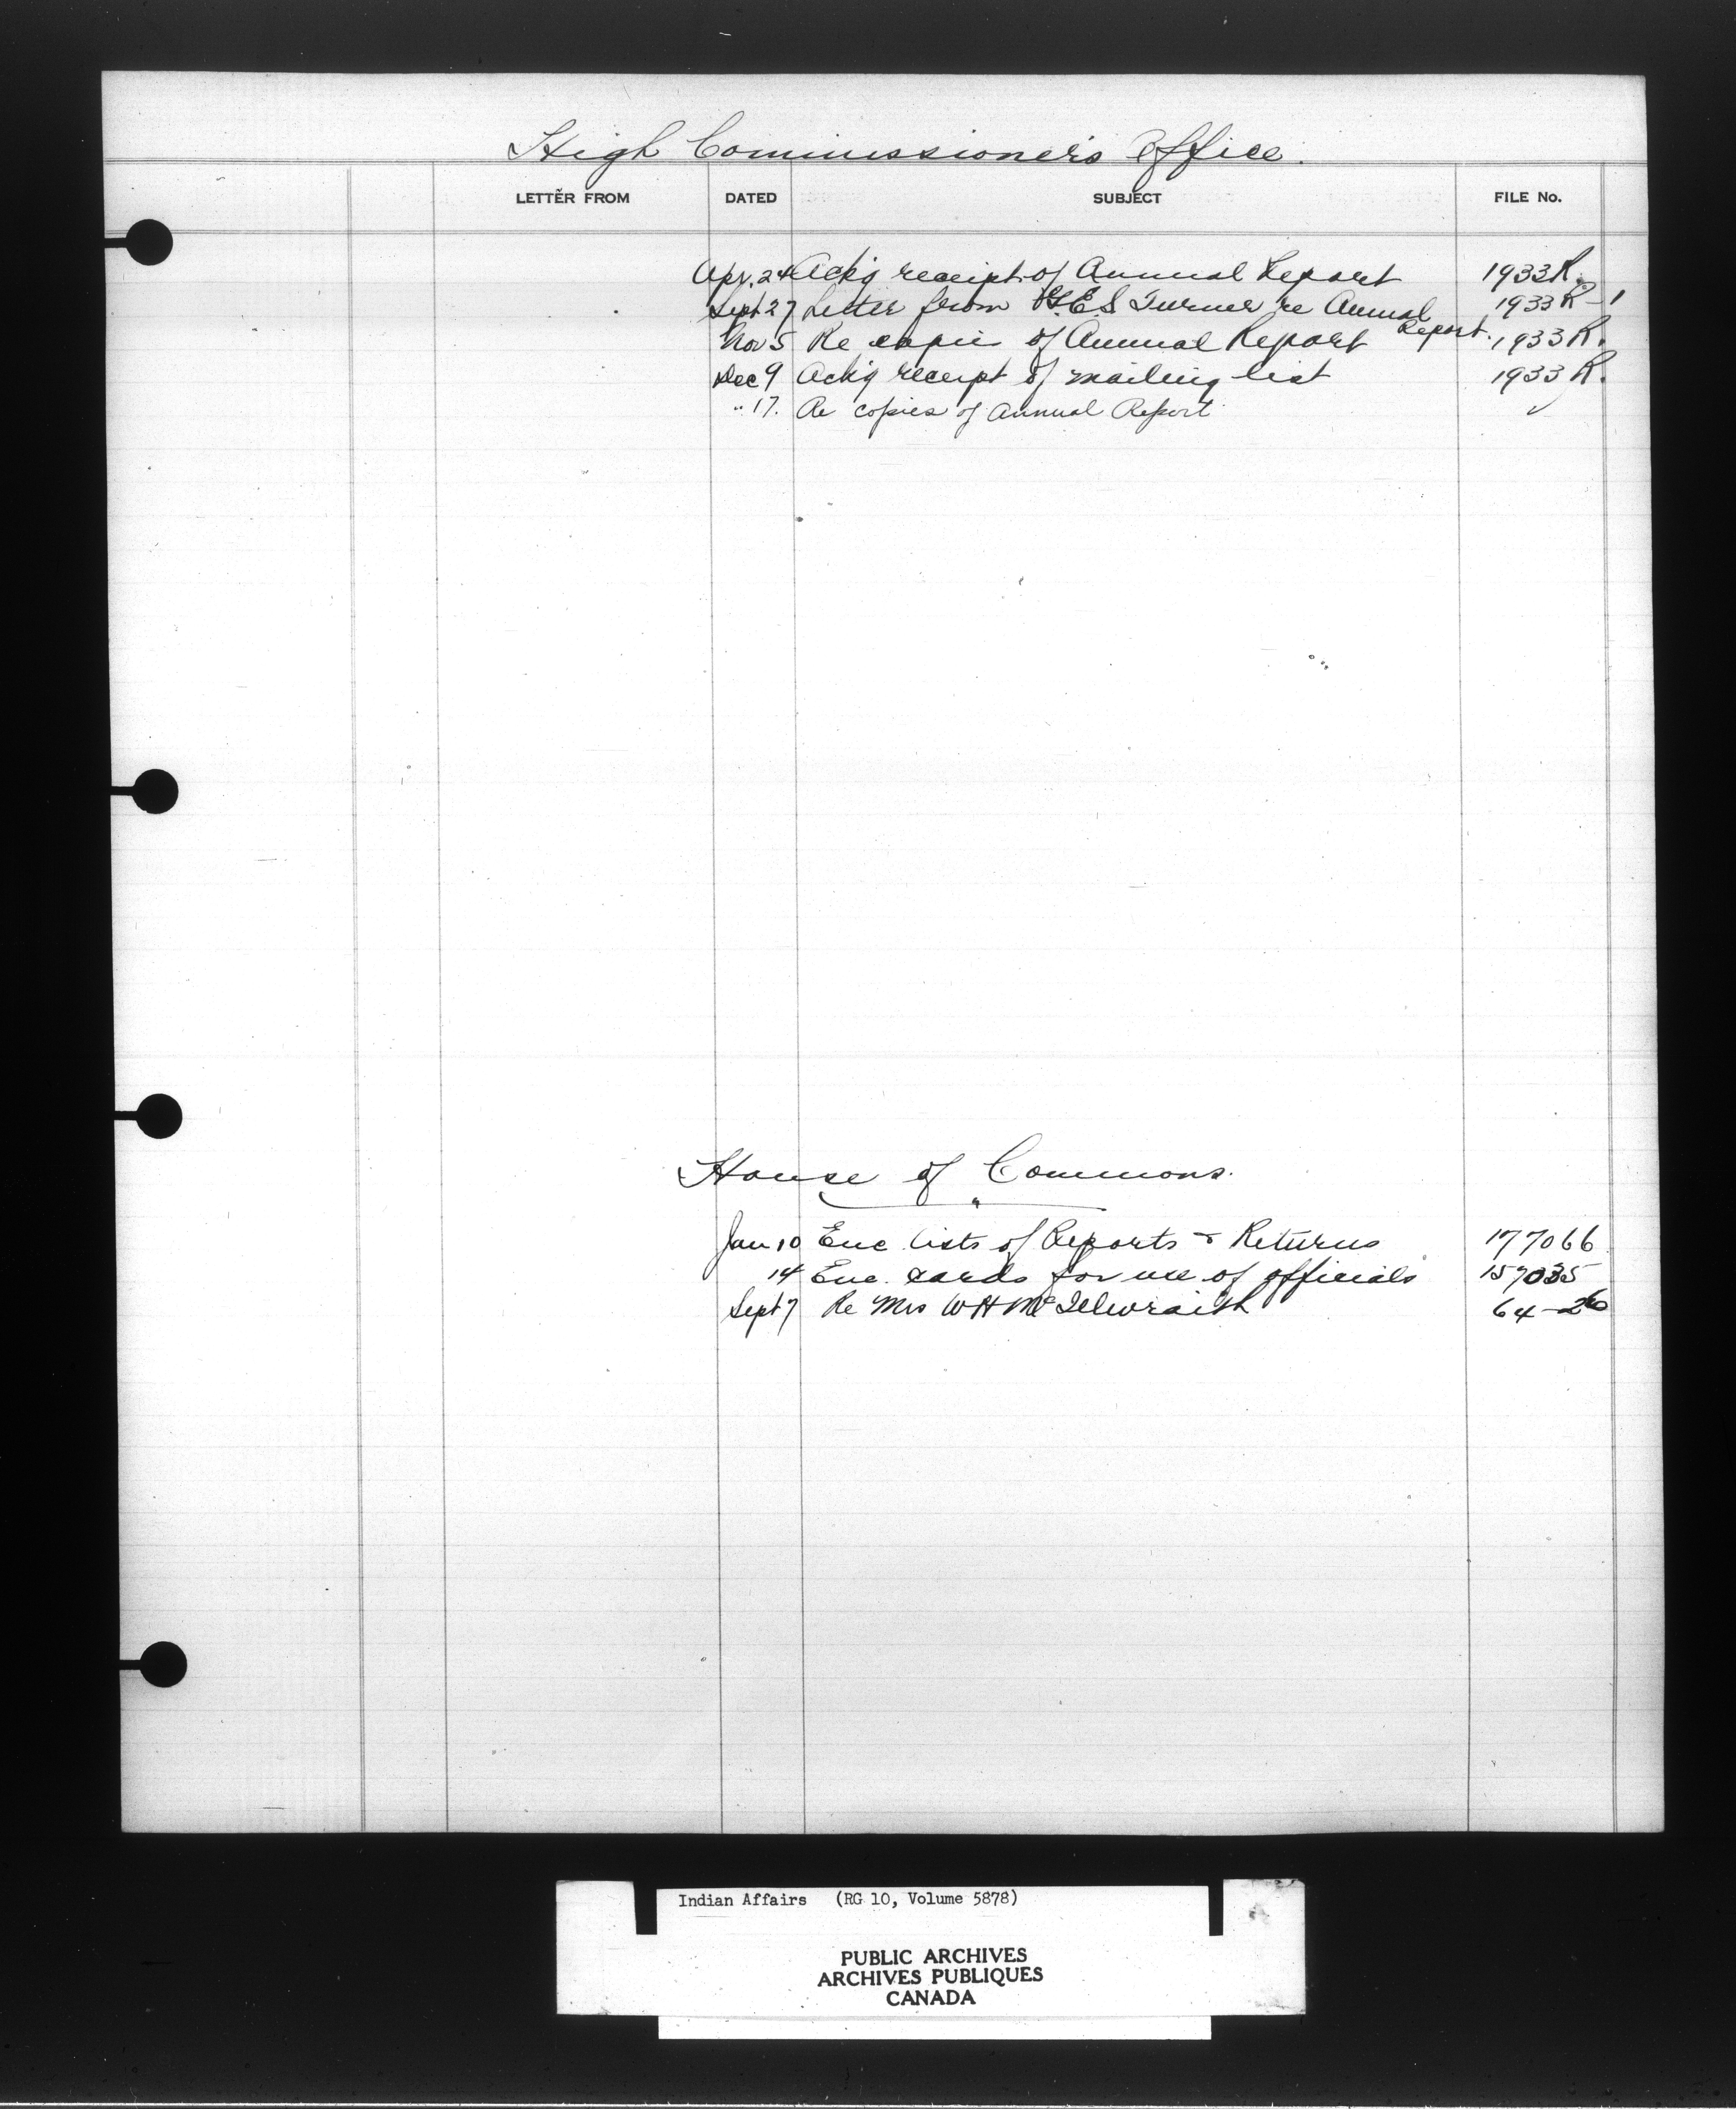 High Commissioner's Office.
LETTER FROM DATED SUBJECT FILE No.
Apr. 24 Ack'g receipt of Annual Report 1933 R.
Sept 27 Letter from E S Turner re Annual Report. 1933 R-1
Nov 5 Re copies of Annual Report 1933 R.
Dec 9 Ack'g receipt of mailing list 1933 R.
" 17. Re copies of Annual Report ✓
House of Commons.
"
Jan 10 Enc lists of Reports & Returns 177066
14 Enc. cards for use of officials 157035
Sept 7 Re Mrs W H McIlwraith 64-26
Indian Affairs (RG 10, Volume 5878)
PUBLIC ARCHIVES
ARCHIVES PUBLIQUES
CANADA